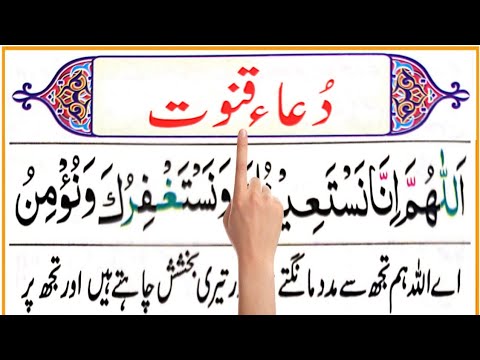 دُعاءِ قنوت
اَللّٰهُمَّ اِنَّا وَنَسْتَغْفِرُكَ وَنُؤْمِنُ
اے اللہ ہم تجھ سے مدد مانگتے تیری بخشش چاہتے ہیں اور تجھ پر